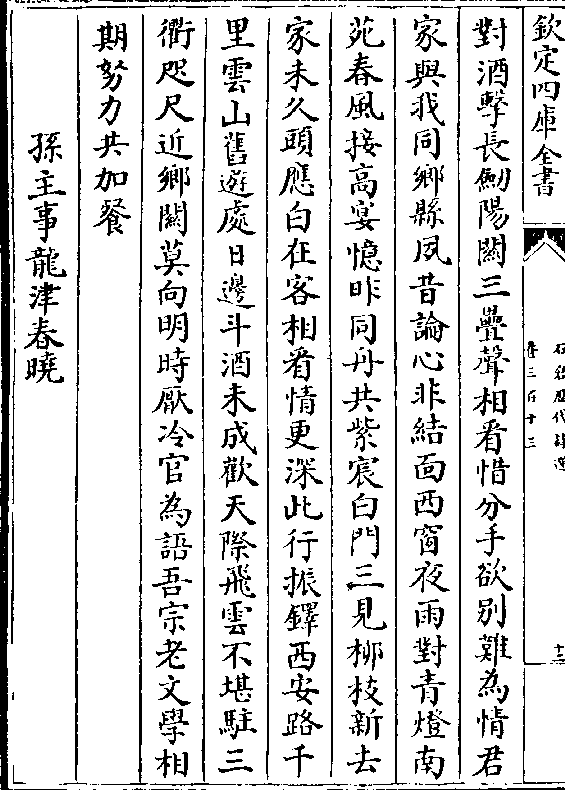 欽定四庫全書
石倉歷代詩選
卷三百十三
十二
對酒擊長劒陽關三疊聲相看惜分手欲別難為情君
家與我同鄉縣夙昔論心非結面西窗夜雨對青燈南
苑春風接高宴憶昨同舟共紫宸白門三見柳枝新去
家未久頭應白在客相看情更深此行振鐸西安路千
里雲山舊遊處日邊斗酒未成歡天際飛雲不堪駐三
衢咫尺近鄉關莫向明時厭冷官為語吾宗老文學相
期努力共加餐
孫主事龍津春曉